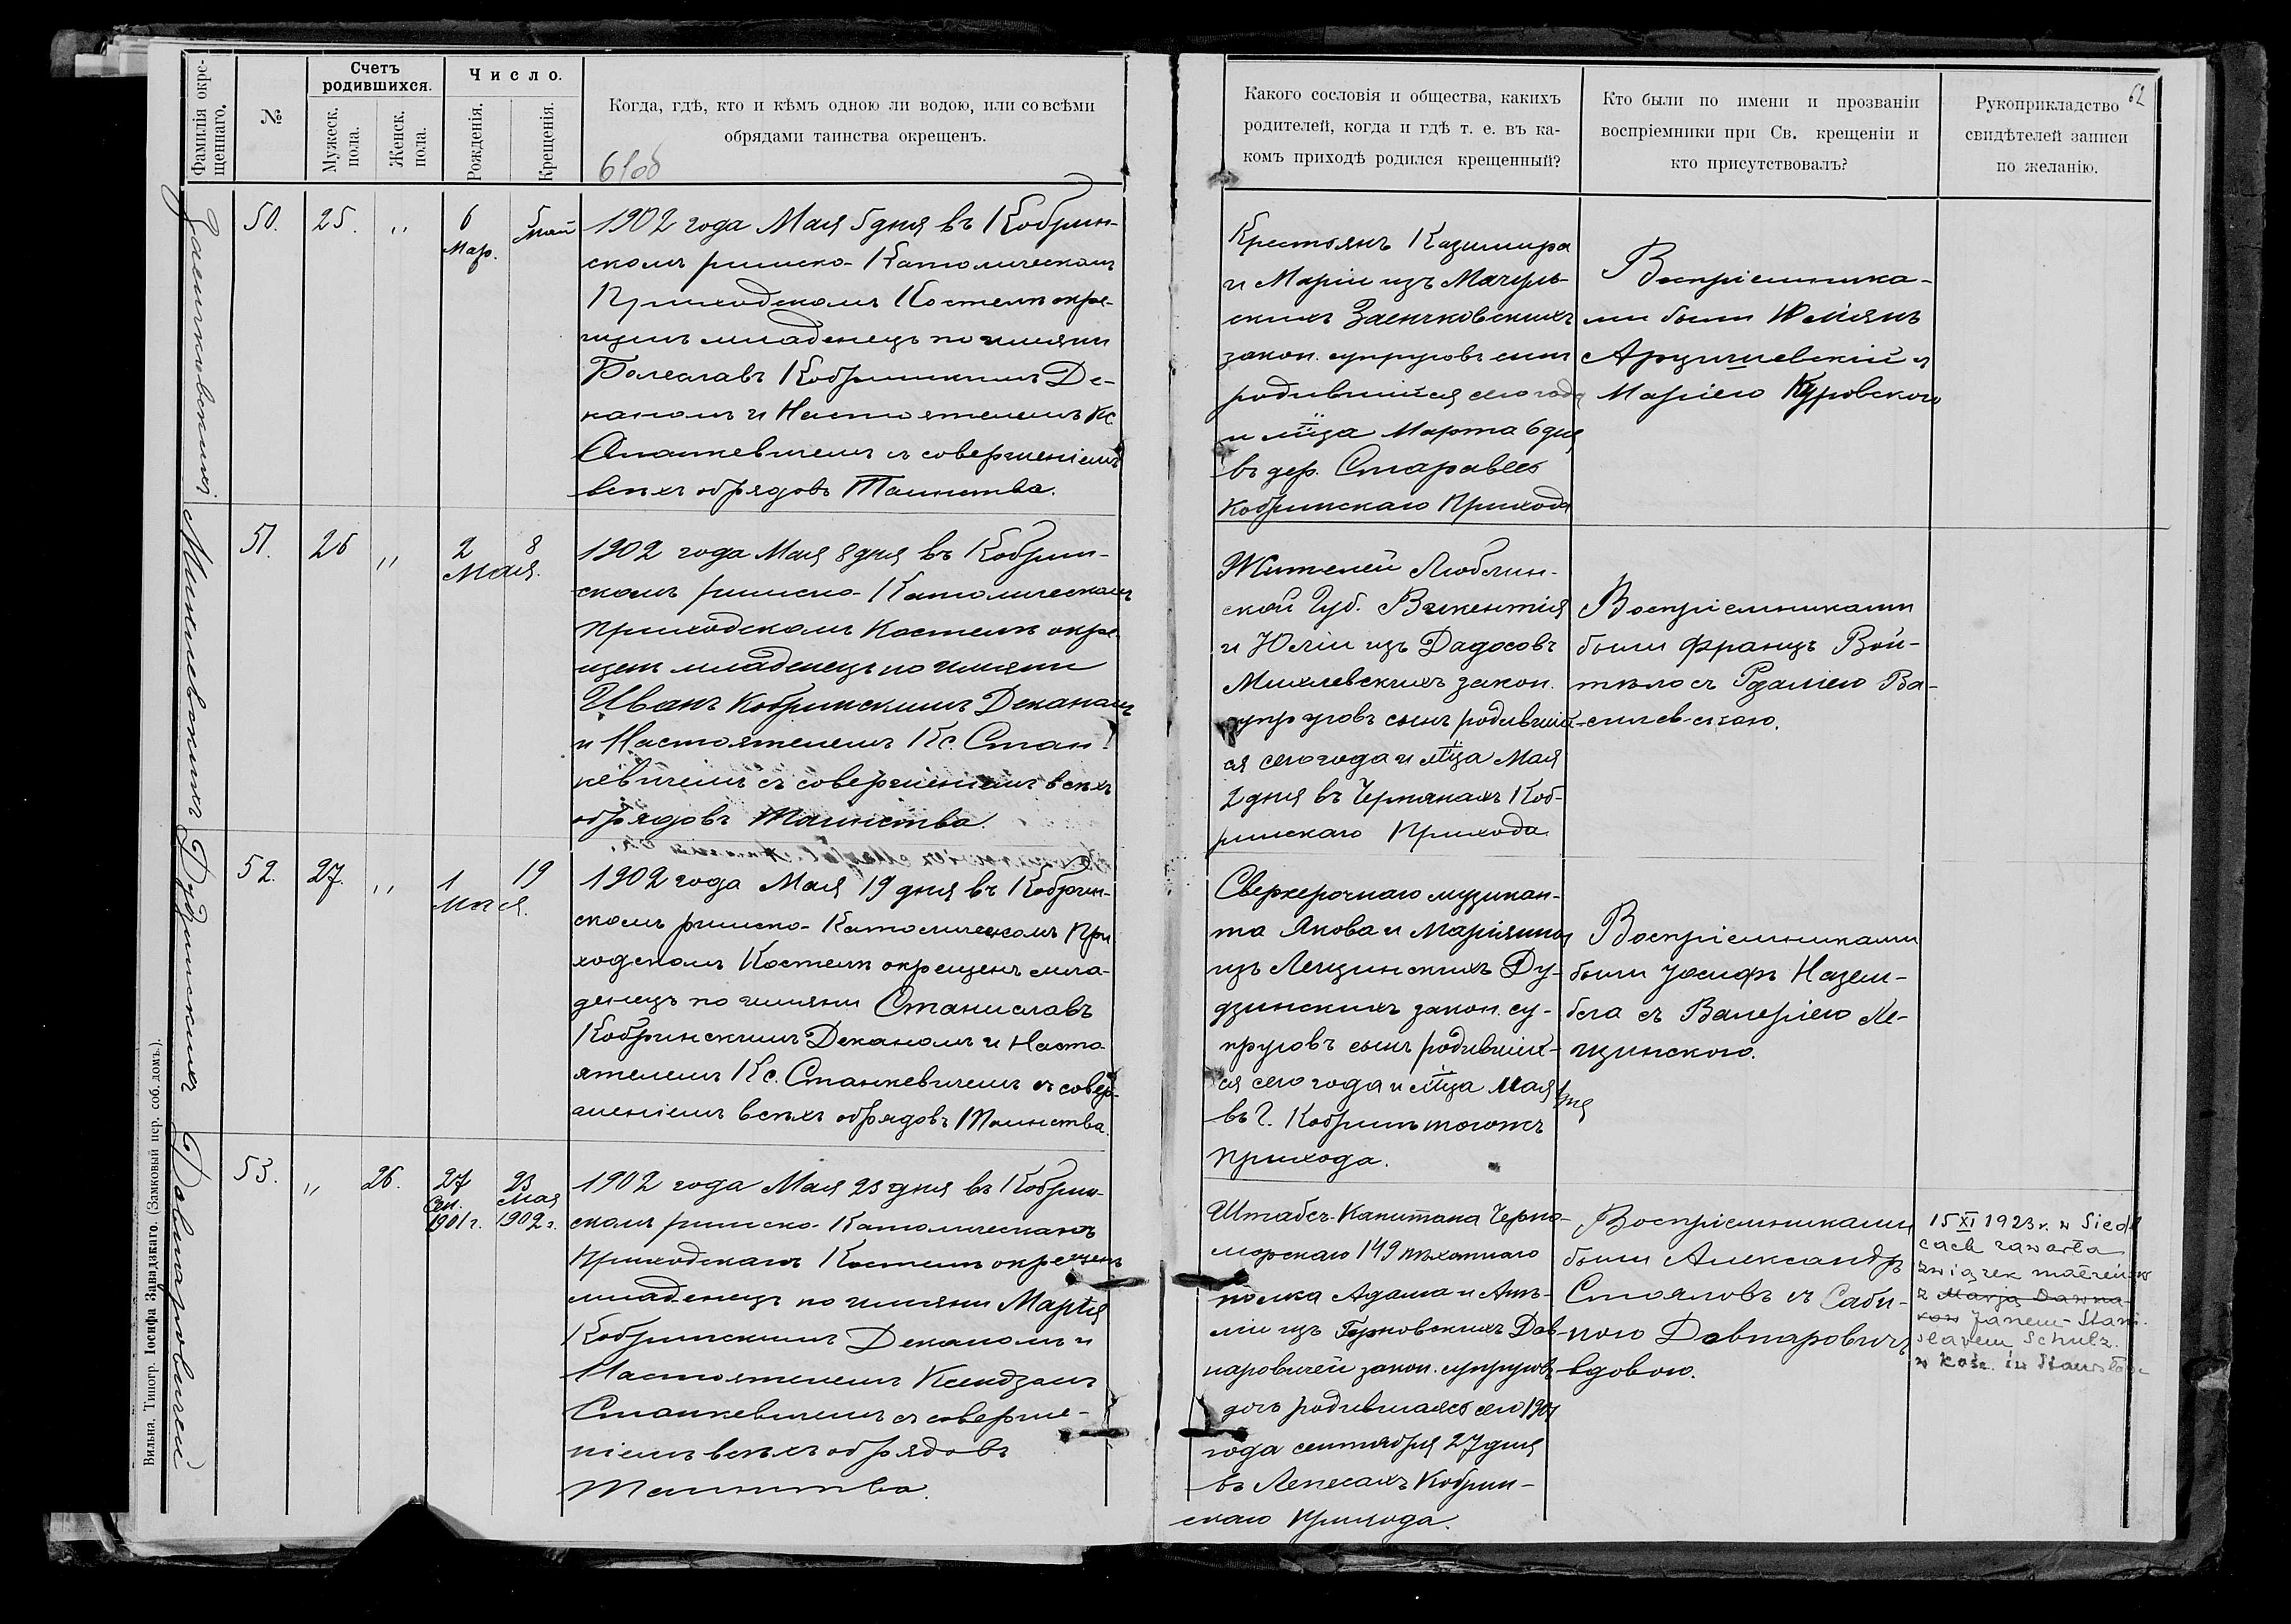 62
Фамилія окре-
щеннаго.
№
Счетъ
родившихся.
Мужеск.
пола.
Женск.
пола.
Число.
Рожденія.
Крещенія.
Когда, гдѣ, кто и кѣмъ одною ли водою, или со всѣми
обрядами таинства окрещенъ.
Какого сословія и общества, какихъ
родителей, когда и гдѣ т. е. въ ка-
комъ приходѣ родился крещенный?
Кто были по имени и прозваніи
воспріемники при Св. крещеніи и
кто присутствовалъ?
Рукоприкладство
свидѣтелей записи
по желанію.
50.
25.
"
6
Мар.
5
Май
1902 года Мая 5 дня въ Кобрин-
скомъ римско-Католическомъ
Приходскомъ Костелѣ окре-
щенъ младенецъ по имяни
Болеславъ Кобринскимъ Де-
каномъ и Настоятелемъ Кс.
Станкевичемъ съ совершеніемъ
всѣхъ обрядовъ Таинства.
Крестьянъ Казимира
и Маріи изъ Мачуль-
скихъ Заенчковскихъ
закон. супруговъ сынъ
родившійся сего года
и мца Марта 6 дня
въ дер. Старавесь
Кобринскаго Прихода
Воспріемника-
ми были
и
Маріею Куровскою
51.
26
"
2 8
Мая.
1902 года Мая 8 дня въ Кобрин-
скомъ римско-Католическомъ
Приходскомъ Костелѣ окре-
щенъ младенецъ по имяни
Иванъ Кобринскимъ Деканомъ
и Настоятелемъ Кс. Стан-
кевичемъ съ совершеніемъ всѣхъ
обрядовъ Таинства.
Жителей Люблин-
ской Губ. Викентія
и Юліи изъ Дадосовъ
Михлевскихъ закон.
супруговъ сынъ родившій-
ся сего года и мца Мая
2 дня въ Чернянахъ Коб-
ринскаго Прихода
Воспріемниками
были Францъ Вой-
съ Ва-
силев-скою.
52.
27.
"
1 19
Мая.
1902 года Мая 19 дня въ Кобрин-
скомъ римско-Католическомъ При-
ходскомъ Костелѣ окрещенъ мла-
денецъ по имяни Станиславъ
Кобринскимъ Деканомъ и Насто-
ятелемъ Кс. Станкевичемъ съ совер-
шеніемъ всѣхъ обрядовъ Таинства.
Сверхсрочнаго музикан-
та Якова и Маріянны
изъ Лещинскихъ Ду-
дзинскихъ закон. су-
пруговъ сынъ родивший-
ся сего года и мца Мая 1 дня
въ г. Кобринѣ тогожъ
прихода.
Воспріемниками
были Іосифъ Назем-
бега съ Валеріею Ле-
щинскою.
53.
"
26.
27
Сен.
1901 г.
23
Мая
1902 г.
1902 года Мая 23 дня въ Кобрин-
скомъ римско-Католическомъ
Приходскомъ Костелѣ окрещенъ
младенецъ по имяни Марія
Кобринскимъ Деканомъ и
Настоятелемъ Ксендзомъ
Станкевичемъ съ соверше-
ніемъ всѣхъ обрядовъ
Таинства.
Штабсъ-Капитана Черно-
морскаго 149 пѣхотнаго
полка Адама и
изъ Дов-
наровичей закон. супруговъ
дочь родившаясь сего 1901
года сентября 27 дня
въ Лепесахъ Кобрин-
скаго Прихода.
Воспріемниками
были Александръ
Стояловъ съ Саби-
ною Довнаровичъ
вдовою.
15 XI 1923 r. w Siedl
cach zawarła
związek małżeński
z Marją Dawna-
Janem-Stani-
sławem Schulz.
w kość. św Stanisława
Заенчковскихъ
Михлевскихъ
Дудзинскихъ
Довнаровичей
Вильна. Типогр. Іосифа Завадзкаго. (Замковый пер. соб. домъ.).